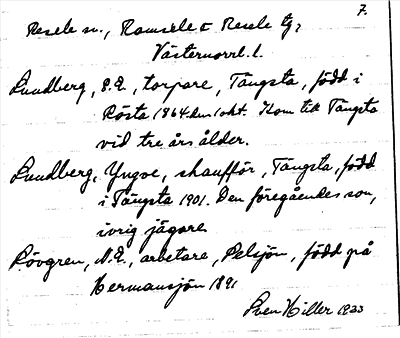 7.
Resele sn., Ramsele & Resele tg,
Västernorrl. l.
Lundberg, P.E., torpare, Tängsta, född i
Rösta 1864 den 1 okt. Kom till Tängsta
vid tre års ålder.
Lundberg, Yngve, chaufför, Tängsta, född
i Tängsta 1901. Den föregåendes son,
ivrig jägare.
Rövgren, N.E., arbetare, Pelsjön, född på
Hermansjön 1891
Sven Hiller 1933